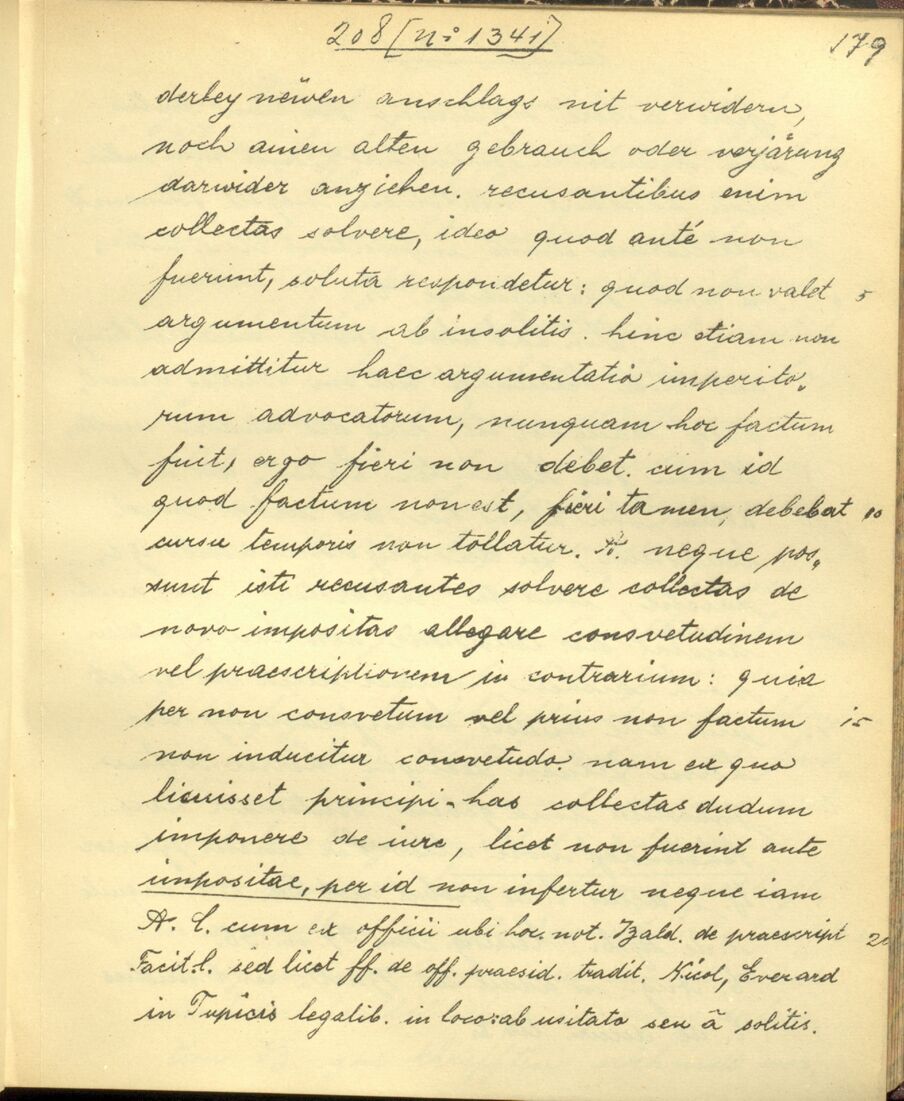 208 [nº 1341]
179
derley nëwen anschlags nit verwidern,
noch ainen alten gebrauch oder verjårung
darwider anziehen. recusantibus enim
collectas solvere, ideo quod anté non
fuerint, soluta respondetur: quod non valet 5
argumentum ab insolitis. hinc etiam non
admittitur haec argumentatio imperito„
rum advocatorum, nunquam hoc factum
fuit, ergo fieri non debet. cum id
quod factum non est, fieri tamen, debebat 10
cursu temporis non tollatur. A. neque pos„
sunt isti recusantes solvere collectas de
novo impositas allegare consvetudinem
vel praescriptionem in contrarium: quia
per non consvetum vel prius non factum 15
non inducitur consvetudo. nam ex quo
licuisset principi has collectas dudum
imponere de iure, licet non fuerint ante
impositae, per id non infertur neque iam
A. l. cum ex officii ubi hoc. not. Bald. de praescript 20
Facit. l. sed licet ff. de off. praesid. tradit. Nicol, Everard
in Topicis legalib. in loco: ab usitato seu ã solitis.